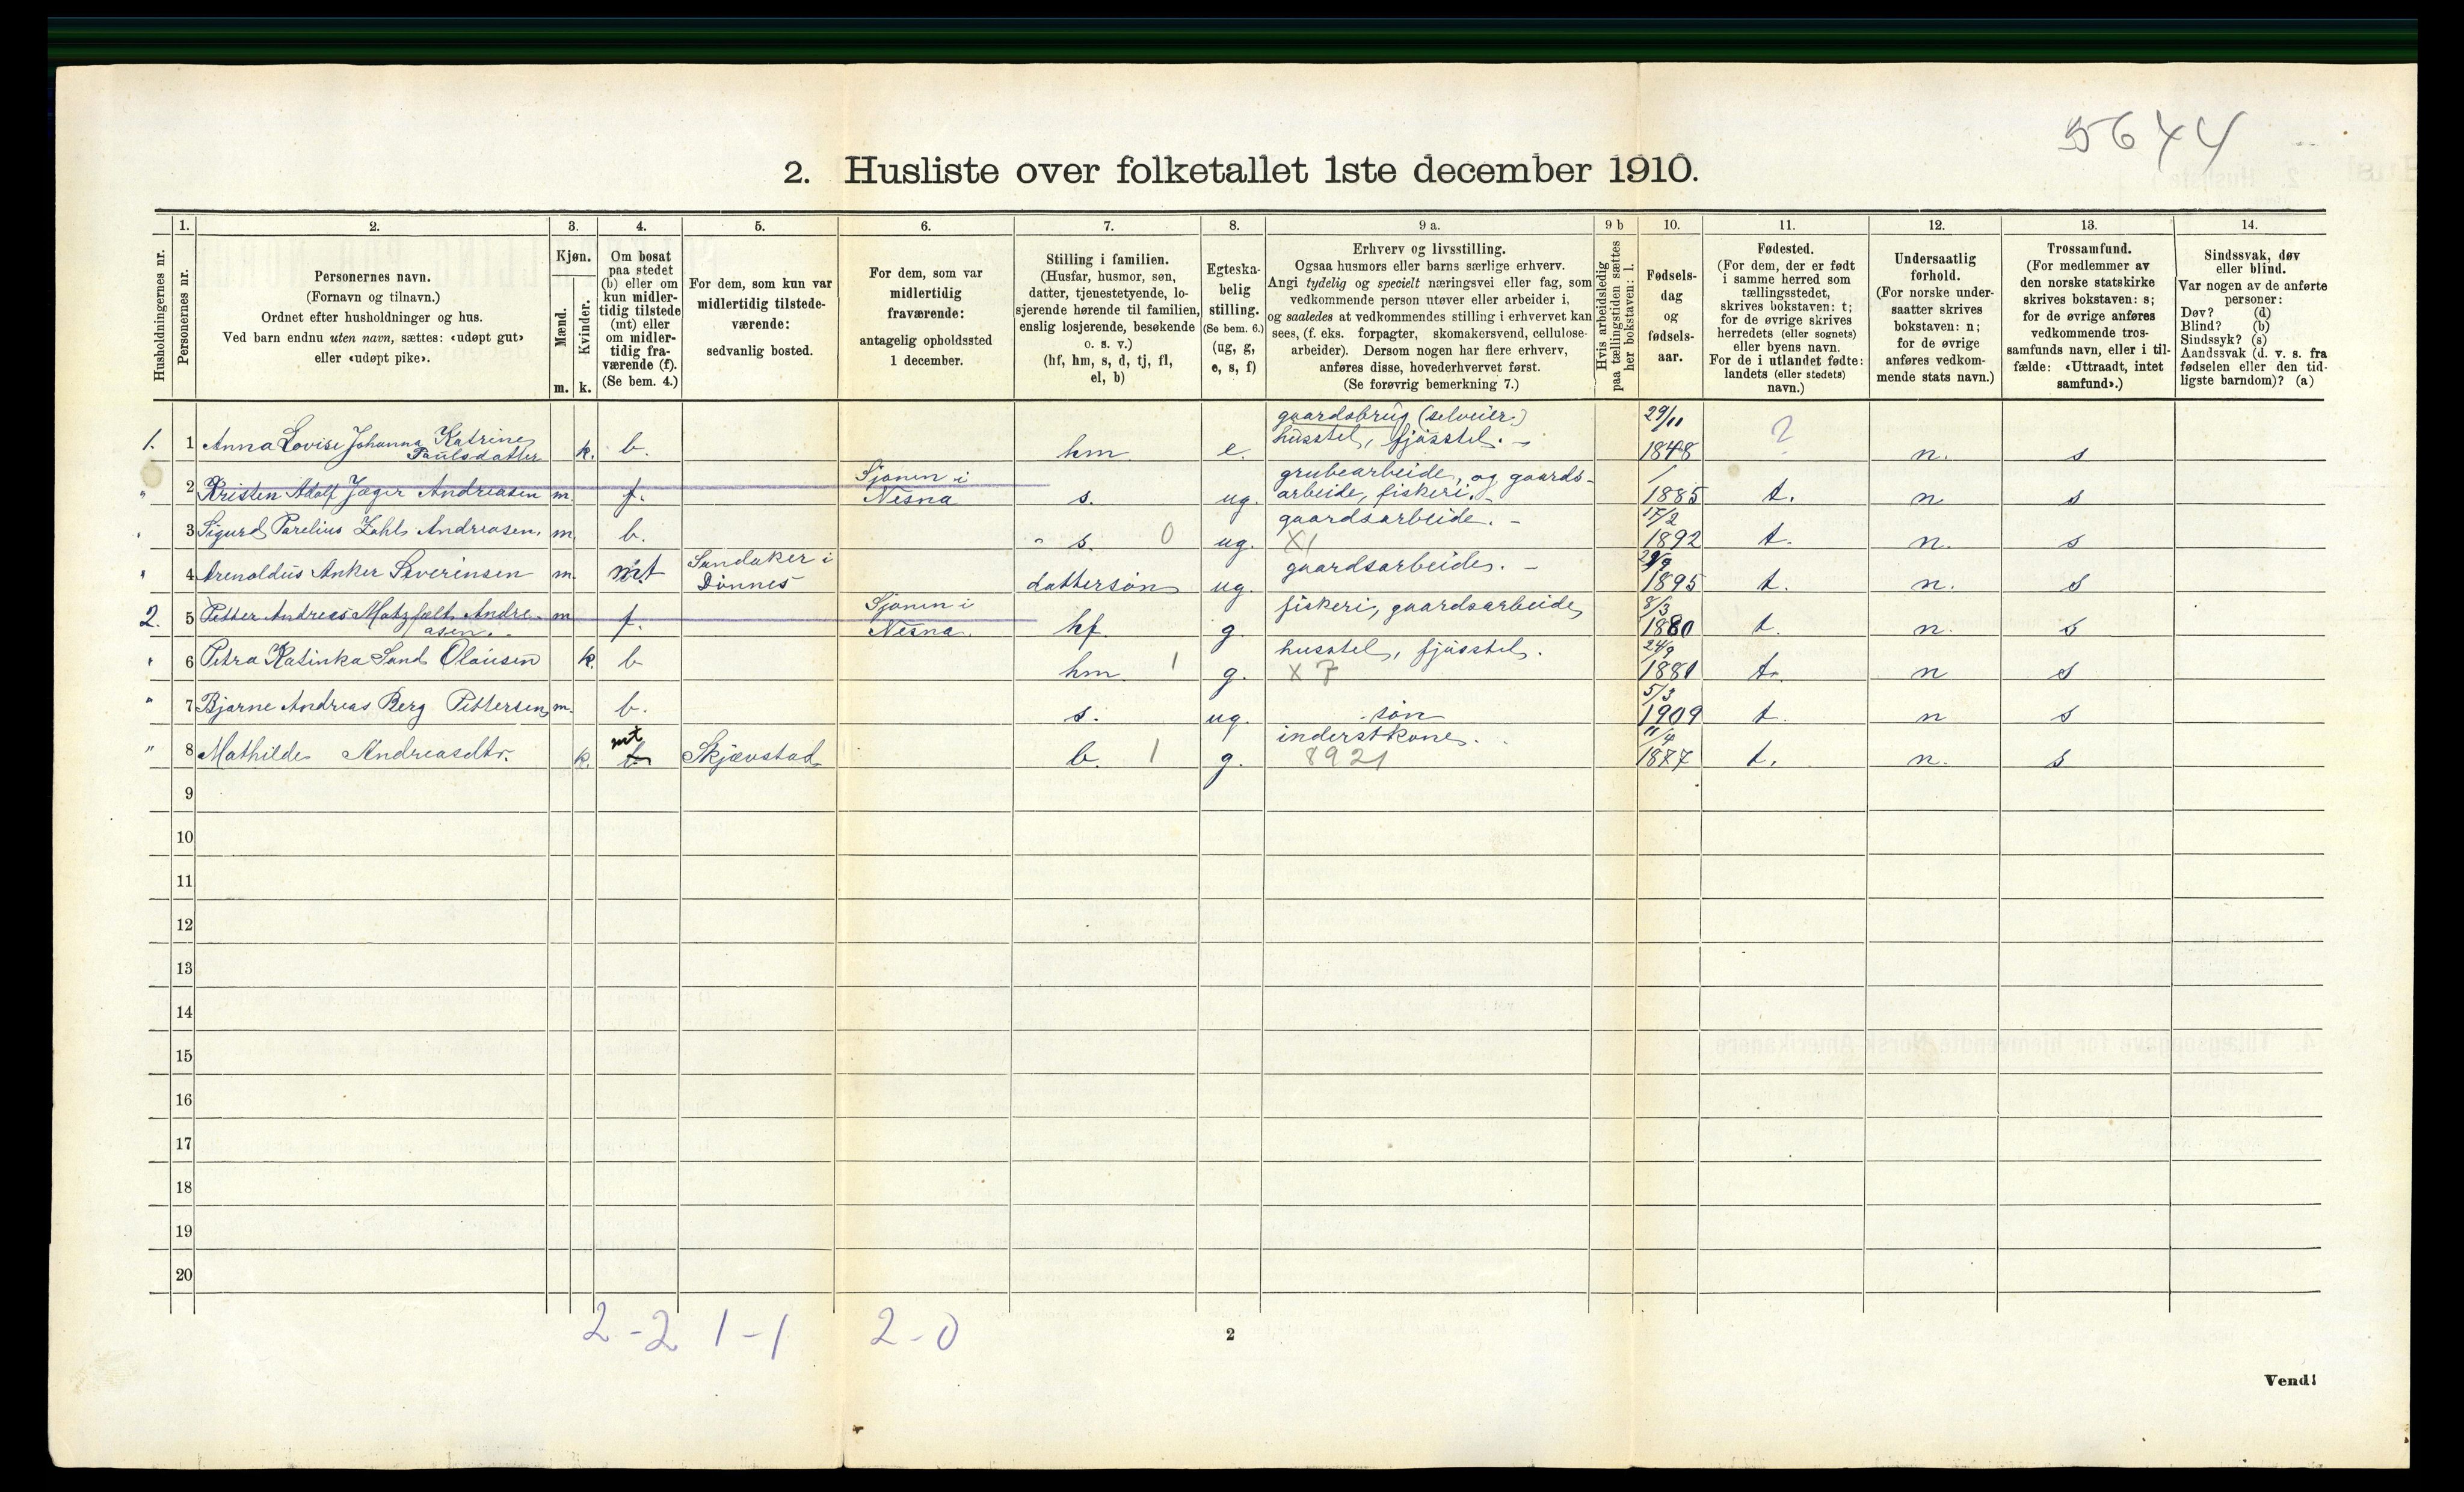 5644
2. Husliste over folketallet 1ste december 1910.
1. 2. 3. 4. 5. 6. 7. 8. 9 a. 9 b 10. 11. 12. 13. 14.
Husholdningernes nr.
Personernes nr.
Personernes navn.
(Fornavn og tilnavn.)
Ordnet efter husholdninger og hus.
Ved barn endnu uten navn, sættes: «udøpt gut»
eller «udøpt pike».
Kjøn.
Mænd.
Kvinder.
m. k.
Om bosat
paa stedet
(b) eller om
kun midler-
tidig tilstede
(mt) eller
om midler-
tidig fra-
værende (f).
(Se bem. 4.)
For dem, som kun var
midlertidig tilstede-
værende:
sedvanlig bosted.
For dem, som var
midlertidig
fraværende:
antagelig opholdssted
1 december.
Stilling i familien.
(Husfar, husmor, søn,
datter, tjenestetyende, lo-
sjerende hørende til familien,
enslig losjerende, besøkende
o. s. v.)
(hf, hm, s, d, tj, fl,
el, b)
Egteska-
belig
stilling.
(Se bem. 6.)
(ug, g,
e, s, f)
Erhverv og livsstilling.
Ogsaa husmors eller barns særlige erhverv.
Angi tydelig og specielt næringsvei eller fag, som
vedkommende person utøver eller arbeider i,
og saaledes at vedkommendes stilling i erhvervet kan
sees, (f. eks. forpagter, skomakersvend, cellulose-
arbeider). Dersom nogen har flere erhverv,
anføres disse, hovederhvervet først.
(Se forøvrig bemerkning 7.)
Hvis arbeidsledig
paa tællingstiden sættes
her bokstaven: l.
Fødsels-
dag
og
fødsels-
aar.
Fødested.
(For dem, der er født
i samme herred som
tællingsstedet,
skrives bokstaven: t;
for de øvrige skrives
herredets (eller sognets)
eller byens navn.
For de i utlandet fødte:
landets (eller stedets)
navn.)
Undersaatlig
forhold.
(For norske under-
saatter skrives
bokstaven: n;
for de øvrige
anføres vedkom-
mende stats navn.)
Trossamfund.
(For medlemmer av
den norske statskirke
skrives bokstaven: s;
for de øvrige anføres
vedkommende tros-
samfunds navn, eller i til-
fælde: «Uttraadt, intet
samfund».)
Sindssvak, døv
eller blind.
Var nogen av de anførte
personer:
Døv? (d)
Blind? (b)
Sindssyk? (s)
Aandssvak (d. v. s. fra
fødselen eller den tid-
ligste barndom)? (a)
gaardsbrug (selveier) 29/11
1. 1 Anna Lovise Johanna Katrine Paulsdatter k. b. hm e. husstel, fjøsstel. - 1848 ? n. s
Sjonen i grubearbeide, og gaards-
" 2 Kristen Adolf Jæger Andreasen m. f. Nesna s. ug. arbeide, fiskeri, - 1885 t. n s
gaardsarbeide. - 17/2
" 3 Sigurd Parelius Zahl Andreasen. m. b. " s. 0 ug. X1 1892 t. n. s
Sandaker i gaardsarbeide. -
" 4 Arenoldus Anker Severinsen m. mt Dønnes dattersøn ug. 1895 t. n. s
Sjonen i fiskeri, gaardsarbeide 8/3
2. 5 Petter Andreas Matzfelt Andreasen. m. f. Nesna. hf. g. 1880 t. n. s
husstel, fjøsstel. 24/9
" 6 Petra Katinka Sand Olausen k. b hm. 1 g. X 7 1881 t. n s
5/3
" 7 Bjarne Andreas Berg Pettersen m. b. s. ug. søn 1909 t. n s
mt inderstkone. 11/4
" 8 Mathilde Andreasdtr. k. b. Skjævstad b. 1 g. 8921 1877 t. n. s
9
10
11
12
13
14
15
16
17
18
19
20
2-2 1-1 2-0
2
Vend!